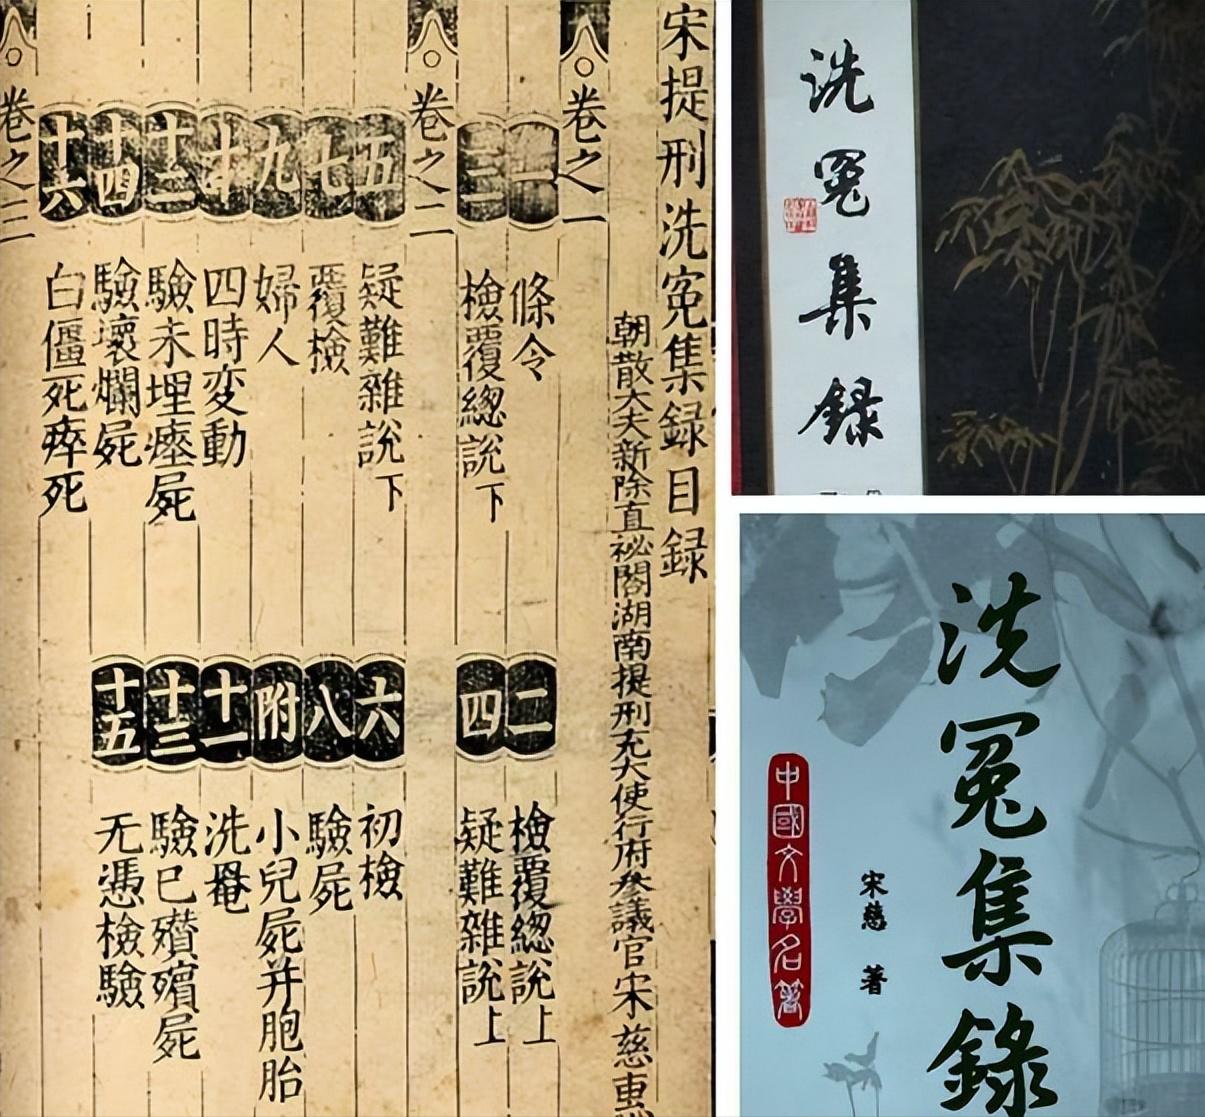 宋提刑洗寃集録目録
朝散大夫新除直祕閣湖南提刑充大使行府叅議官宋慈惠
卷之一
一 條令 二 檢覆總說上
三 檢覆總說下 四 疑難雜說上
卷之二
五 疑難雜說下 六 初檢
七 覆檢 八 驗屍
九 婦人 附 小兒屍并胞胎
十 四時变動 十一 洗罨
十二 驗未埋瘞屍 十三 驗已殯屍
十四 驗壞爛屍 十五 无憑檢驗
十六 白僵死瘁死
卷之三
洗冤集録
洗冤集錄
宋慈 著
中國文學名著